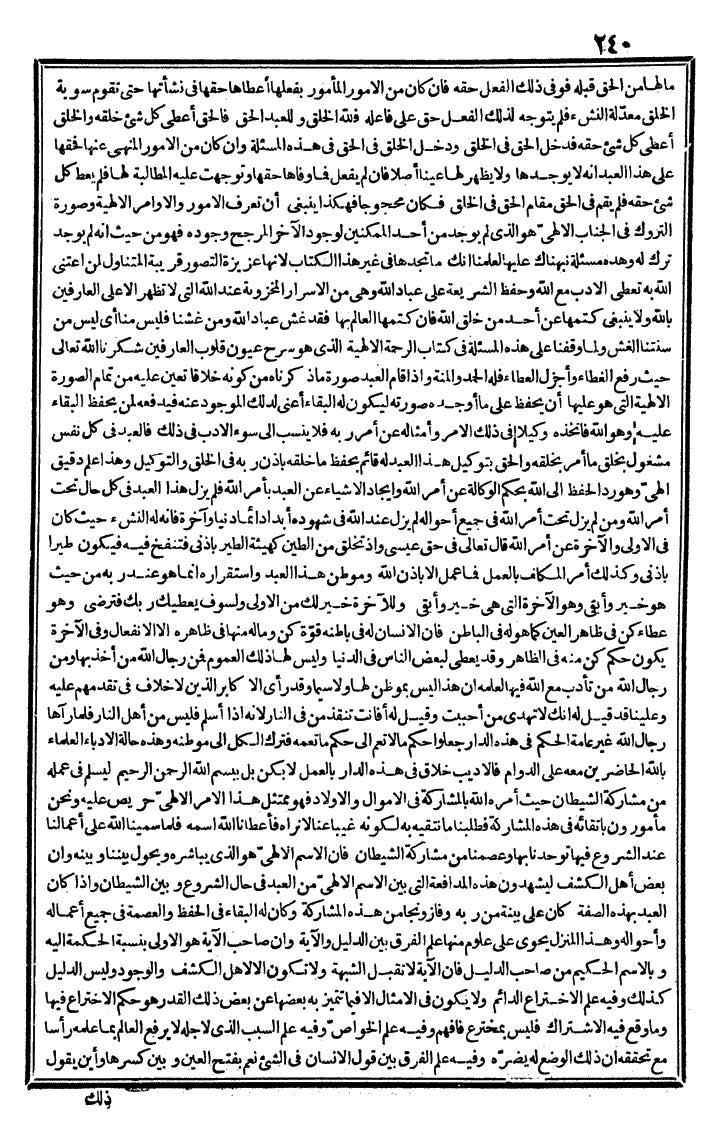 ٢٤٠
مالها من الحق قبله فوفى ذلك الفعل حقه فان كان من الامور المأمور بفعلها أعطاها حقها فى نشأتها حتى تقوم سوية
الخلق معدّلة النشء فلم يتوجه لذلك الفعل حق على فاعله فلله الخلق وللعبد الحق فالحق أعطى كل شئ خلقه والخلق
أعطى كل شئ حقه فدخل الحق فى الخلق ودخل الخلق فى الحق فى هذه المسئلة وان كان من الامور المنهى عنها فحقها
على هذا العبد انه لا يوجدها ولا يظهر لها عينا أصلا فان لم يفعل فما وفاها حقها وتوجهت عليه المطالبة لها فلم يعط كل
شئ حقه فلم يقم فى الحق مقام الحق فى الخلق فكان محجوجا فهكذا ينبغى أن تعرف الامور والاوامر الالهية وصورة
التروك فى الجناب الالهىّ هو الذى لم يوجد من أحد الممكنين لوجود الآخر المرجح وجوده فهو من حيث انه لم يوجد
ترك له وهذه مسئلة نبهناك عليها لعلمنا انك ما تجدها فى غير هذا الكتاب لانها عزيزة التصور قريبة المتناول لمن اعتنى
الله به تعطى الادب مع الله وحفظ الشريعة على عباد الله وهى من الاسرار المخزونة عند الله التى لا تظهر الا على العارفين
بالله ولا ينبغى كتمها عن أحد من خلق الله فان كتمها العالم بها فقد غش عباد الله ومن غشنا فليس منا أى ليس من
سنتنا الغش ولما وقفنا على هذه المسئلة فى كتاب الرحمة الالهية الذى هو سرح عيون قلوب العارفين شكرنا الله تعالى
حيث رفع الغطاء وأجزل العطاء فله الحمد والمنة واذا قام العبد صورة ما ذكرناه من كونه خلاقا تعين عليه من تمام الصورة
الالهية التى هو عليها أن يحفظ على ما أوجده صورته ليكون له البقاء أعنى لذلك الموجود عنه فيدفعه لمن يحفظ البقاء
عليه وهو الله فاتخذه وكيلا فى ذلك الامر وأمثاله عن أمر ربه فلا ينسب الى سوء الادب فى ذلك فالعبد فى كل نفس
مشغول بخلق ما أمر بخلقه والحق بتوكيل هذا العبد له قائم يحفظ ما خلقه باذن ربه فى الخلق والتوكيل وهذا علم دقيق
الهىّ وهو رد الحفظ الى الله بحكم الوكالة عن أمر الله وايجاد الاشياء عن العبد بأمر الله فلم يزل هذا العبد فى كل حال تحت
أمر الله ومن لم يزل تحت أمر الله فى جميع أحواله لم يزل عند الله فى شهوده أبدا دائما دنيا وآخرة فانه له النشء حيث كان
فى الاولى والآخرة عن أمر الله قال تعالى فى حق عيسى واذ تخلق من الطين كهيئة الطير باذنى فتنفخ فيه فيكون طيرا
باذنى وكذلك أمر المكلف بالعمل فما عمل الا باذن الله وموطن هذا العبد واستقراره انما هو عند ربه من حيث
هو خير وأبقى وهو الآخرة التى هى خير وأبقى وللآخرة خير لك من الاولى ولسوف يعطيك ربك فترضى وهو
عطاء كن فى ظاهر العين كما هو له فى الباطن فان الانسان له فى باطنه قوّة كن وماله منها فى ظاهره الا الانفعال وفى الآخرة
يكون حكم كن منه فى الظاهر وقد يعطى لبعض الناس فى الدنيا وليس لها ذلك العموم فمن رجال الله من أخذ بها ومن
رجال الله من تأدب مع الله فيها لعلمه ان هذا ليس بموطن لها ولا سيما وقد رأى الاكابر الذين لا خلاف فى تقدمهم عليه
وعلينا قد قيل له انك لا تهدى من أحببت وقيل له أفانت تنقذ من فى النار لانه اذا أسلم فليس من أهل النار فلما رآها
رجال الله غير عامة الحكم فى هذه الدار جعلوا حكم ما لا تعم الى حكم ما تعمه فترك الكل الى موطنه وهذه حالة الادباء العلماء
بالله الحاضرين معه على الدوام فالاديب خلاق فى هذه الدار بالعمل لا بكن بل ببسم الله الرحمن الرحيم ليسلم فى عمله
من مشاركة الشيطان حيث أمره الله بالمشاركة فى الاموال والاولاد فهو ممتثل هذا الامر الالهىّ حريص عليه ونحن
مأمورون باتقائه فى هذه المشاركة فطلبنا ما نتقيه به لكونه غيبا عنا لا نراه فأعطانا الله اسمه فلما سمينا الله على أعمالنا
عند الشروع فيها توحدنا بها وعصمنا من مشاركة الشيطان فان الاسم الالهىّ هو الذى يباشره ويحول بيننا وبينه وان
بعض أهل الكشف ليشهدون هذه المدافعة التى بين الاسم الالهىّ من العبد فى حال الشروع وبين الشيطان واذا كان
العبد بهذه الصفة كان على بينة من ربه وفاز ونجا من هذه المشاركة وكان له البقاء فى الحفظ والعصمة فى جميع أعماله
وأحواله وهذا المنزل يحوى على علوم منها علم الفرق بين الدليل والآية وان صاحب الآية هو الاولى بنسبة الحكمة اليه
وبالاسم الحكيم من صاحب الدليل فان الآية لا تقبل الشبهة ولا تكون الا لاهل الكشف والوجود وليس الدليل
كذلك وفيه علم الاختراع الدائم ولا يكون فى الامثال الا فيما تتميز به بعضها عن بعض ذلك القدر هو حكم الاختراع فيها
وما وقع فيه الاشتراك فليس بمخترع فافهم وفيه علم الخواصّ وفيه علم السبب الذى لاجله لا يرفع العالم بما علمه رأسا
مع تحققه ان ذلك الوضع له يضرّه وفيه علم الفرق بين قول الانسان فى الشئ نعم بفتح العين وبين كسرها وأين يقول
ذلك